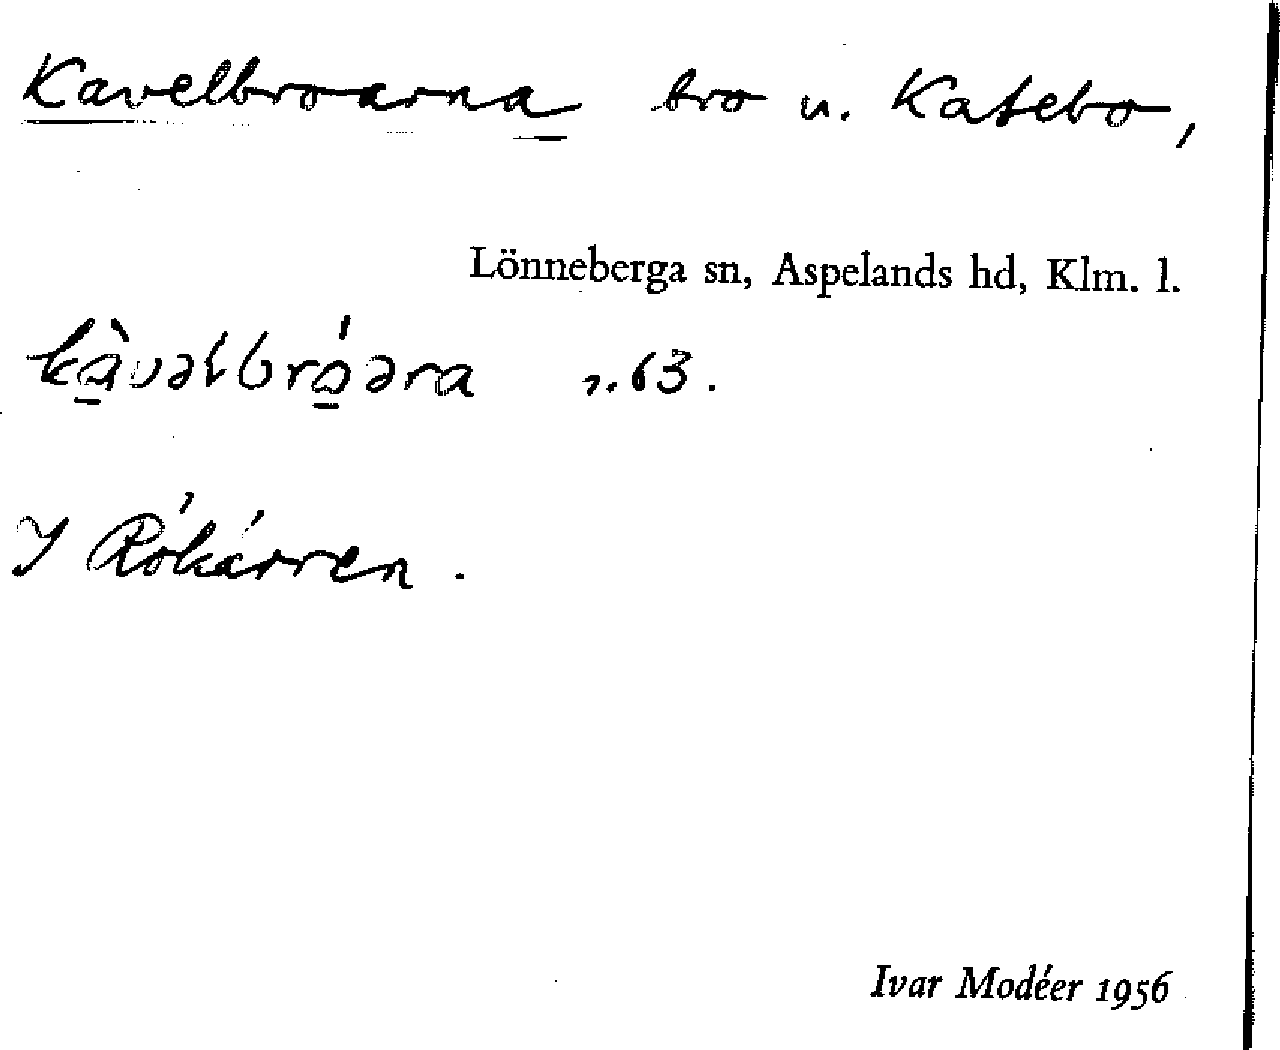 Kavelbroarna bro u. Katebo,
Lönneberga sn, Aspelands hd, Klm. l.
kàvəlbróəra r. 63.
I Rókárren.
Ivar Modéer 1956